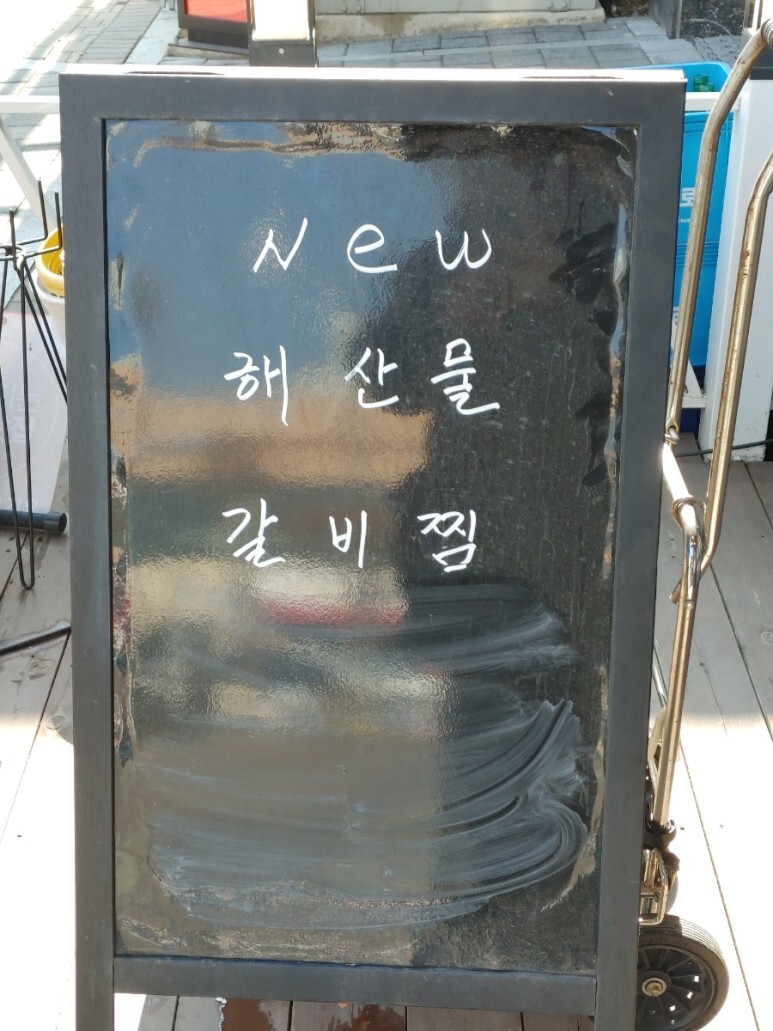 New
해산물
갈비찜